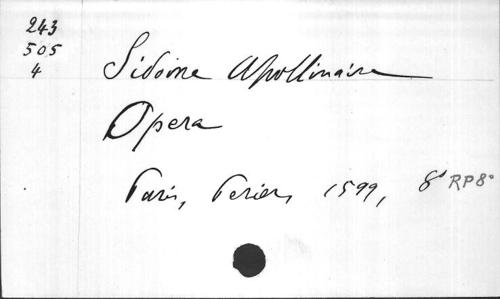 243
505
4
Sidoine Apollinaire
Opera
Paris, Perier, 1599, 8° RP8°